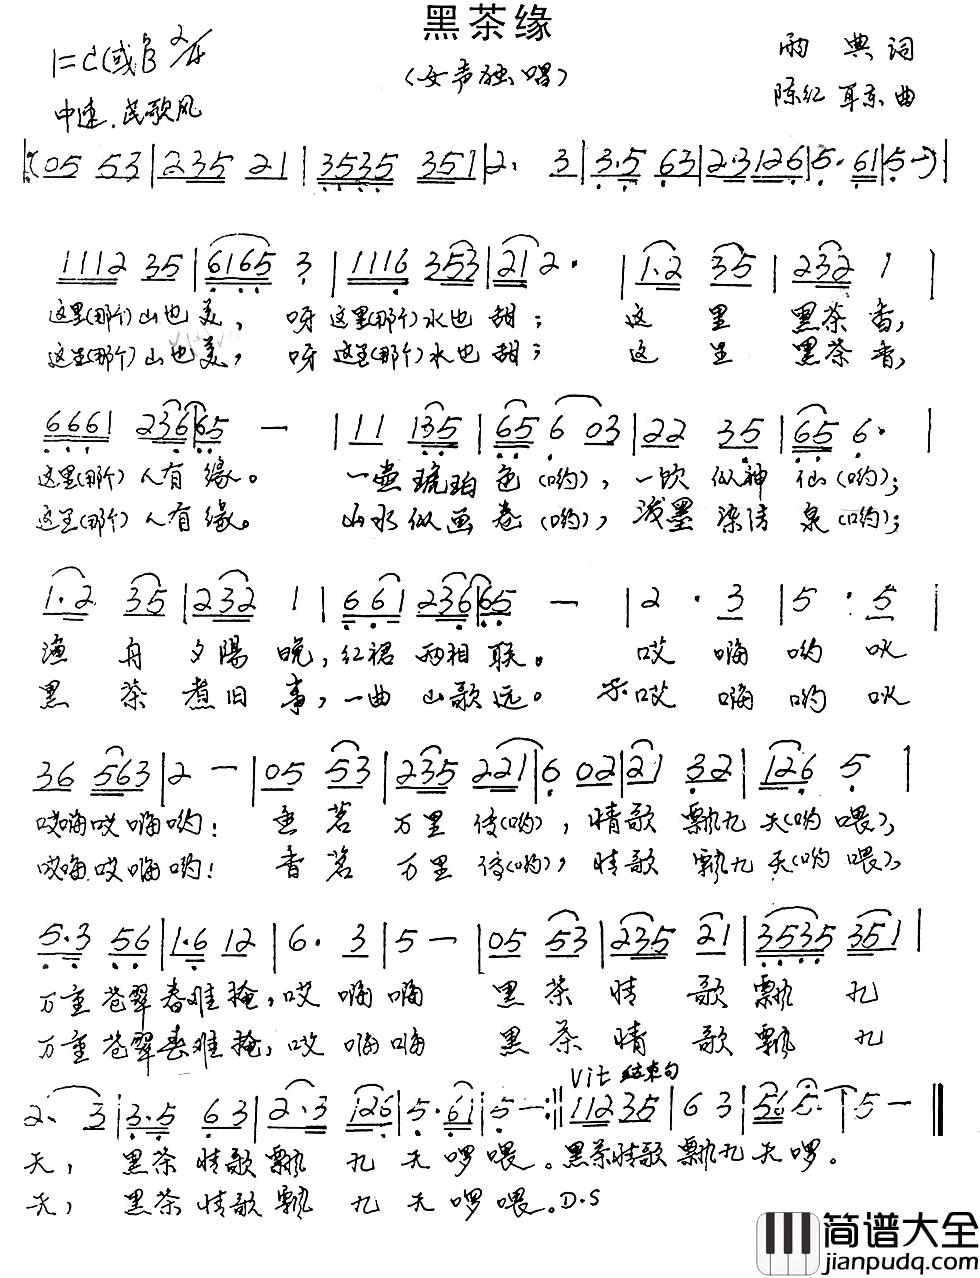 黑茶缘
1=C(或♭B 2/4
(女声独唱)
雨典词
中速.民歌风
陈红 耳东 曲
(05 53|235 21|3535 351|2. 3|3.5 63|2.3 126|5. 61|5 -)|
1112 35|6165 3|1116 353|21 2.|1.2 35|232 1|
这里(那个)山也美, 呀这里(那个)水也甜; 这里黑茶香,
这里(那个)山也美, 呀这里(那个)水也甜; 这里黑茶香,
6661 236|65 -|11 135|65 6 03|22 35|65 6.|
这里(那个)人有缘。 一壶琥珀色(哟), 一饮似神仙(哟);
这里(那个)人有缘。 山水似画卷(哟), 浅墨染清泉(哟);
1.2 35|232 1|661 236|65 -|2. 3|5. 5|
渔舟夕阳晚, 红裙两相联。 哎嗨哟吙
黑茶煮旧事, 一曲山歌远。 哎嗨哟吙
36 563|2 -|05 53|235 221|6 02|21 32|126 5|
哎嗨哎嗨哟! 香茗万里传(哟), 情歌飘九天(哟喂),
哎嗨哎嗨哟! 香茗万里传(哟), 情歌飘九天(哟喂),
5.3 56|1.6 12|6. 3|5 -|05 53|235 21|3535 351|
万重苍翠春难掩, 哎嗨嗨 黑茶情歌飘九
万重苍翠春难掩, 哎嗨嗨 黑茶情歌飘九
Vit 结束句
2. 3|3.5 63|2.3 126|5. 61|5 -:‖1123 5|6 3|56 5.|5 -‖
天, 黑茶情歌飘九天啰喂。黑茶情歌飘九天啰。
天, 黑茶情歌飘九天啰喂。D.S
简谱大全
jianpudq.com